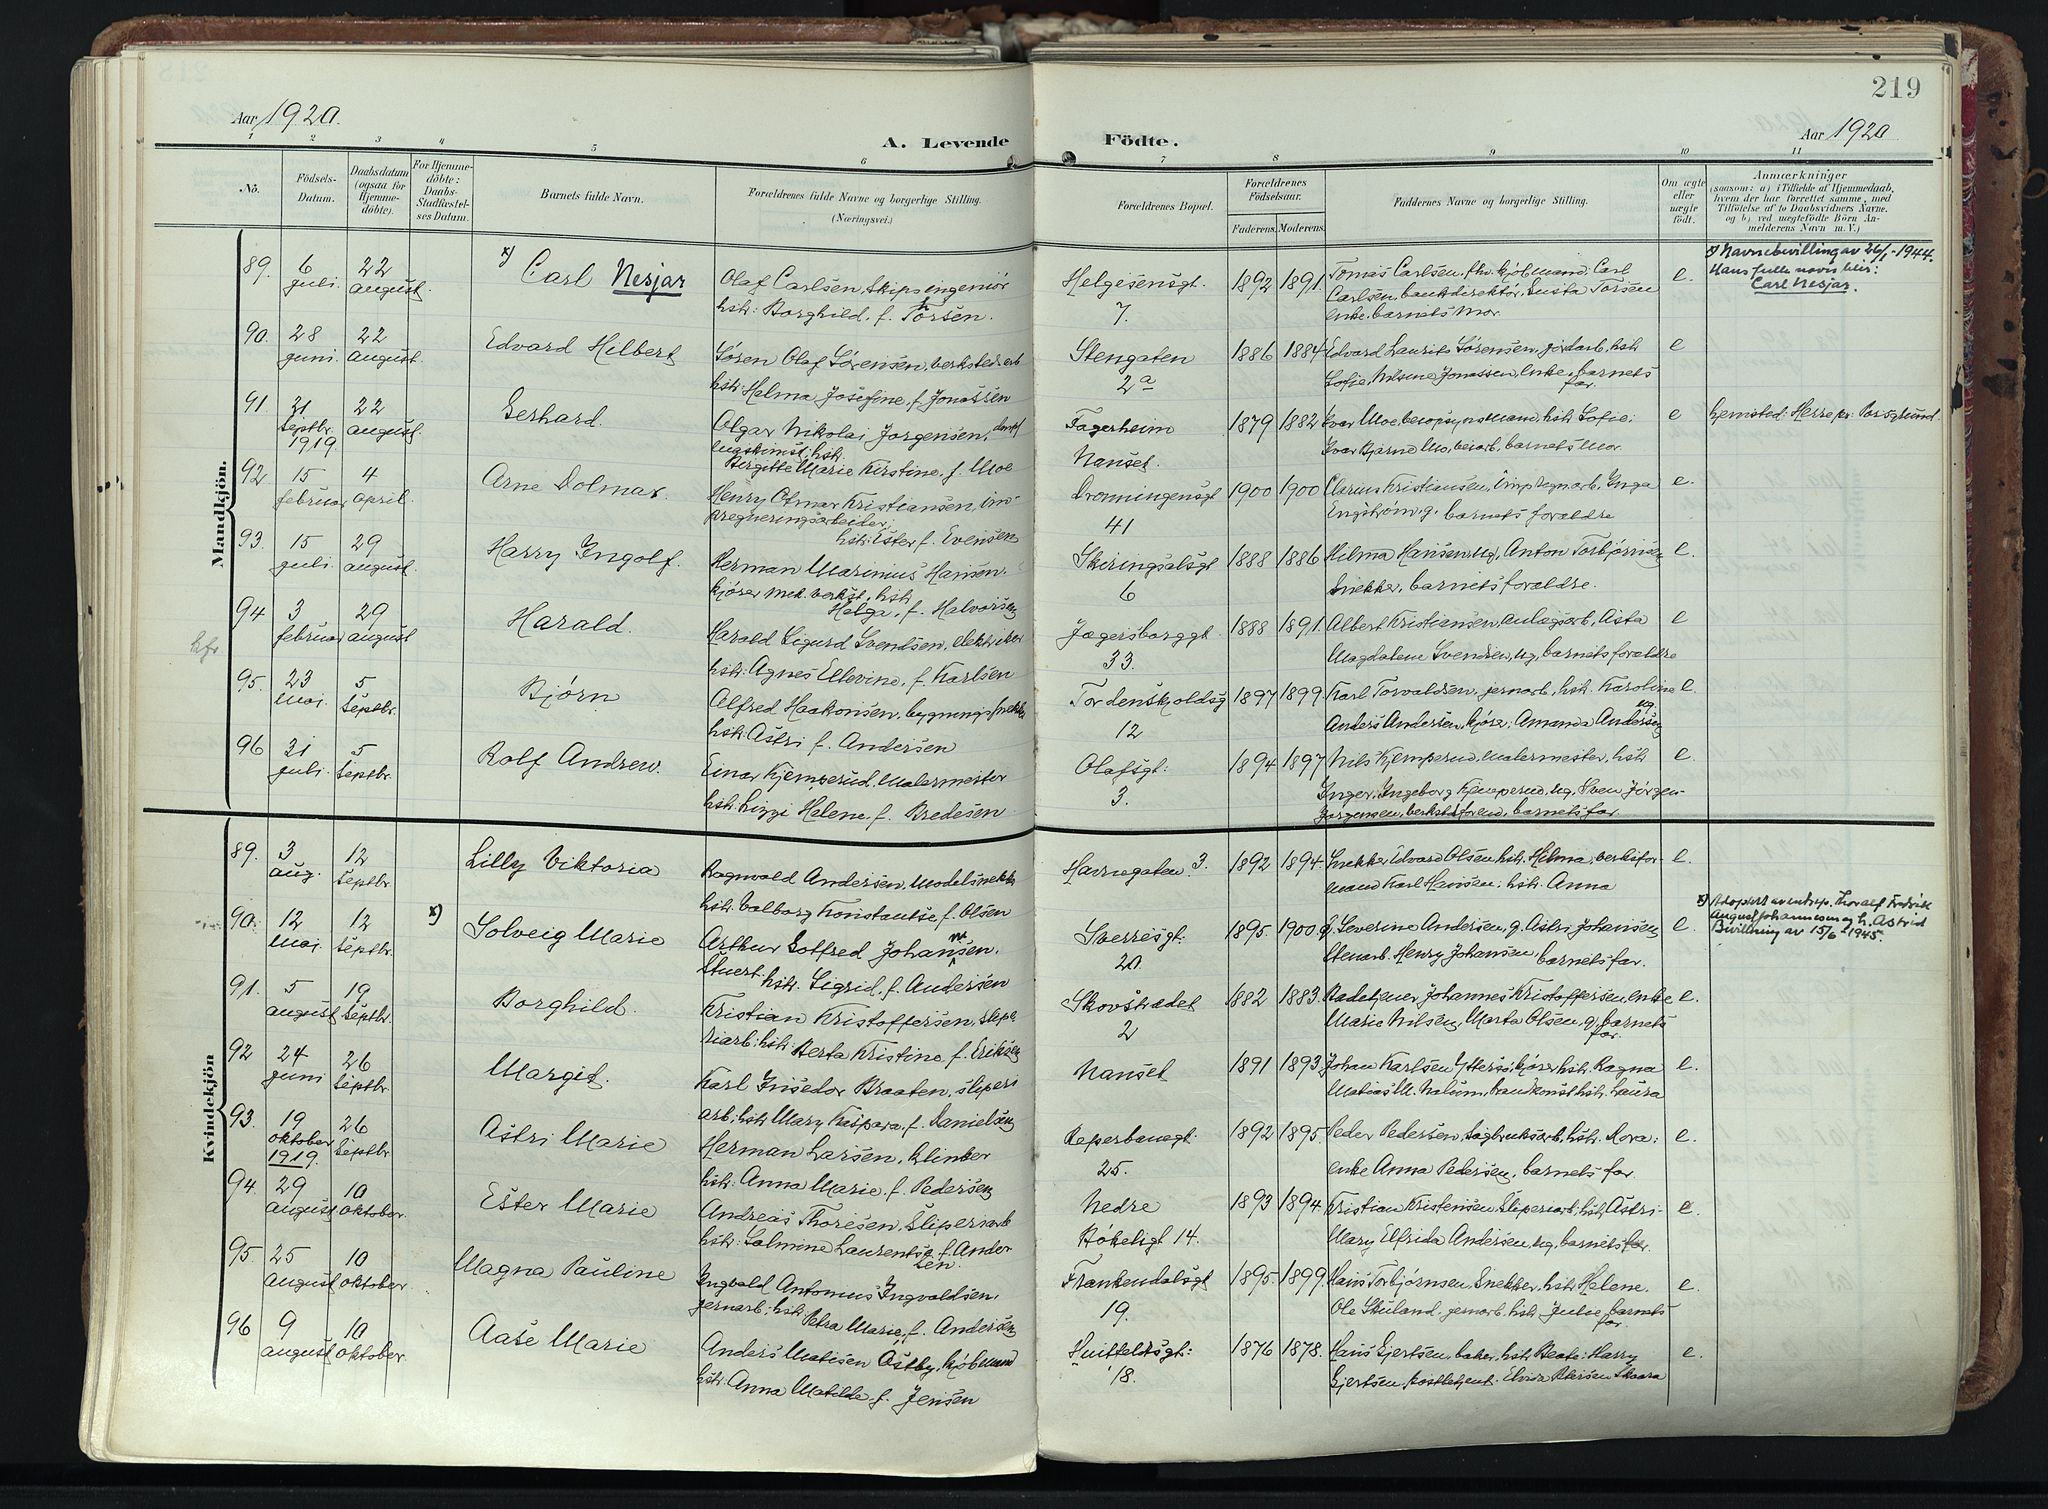 219
Aar 1920.
A. Levende
Födte.
Aar 1920
1 2 3 4 5 6 7 8 9 10 11
No.
Födsels-
Datum.
Daabsdatum
(ogsaa for
Hjemme-
döbte).
For Hjemme-
döbte:
Daabs-
Stadfæstel-
ses Datum.
Barnets fulde Navn.
Forældrenes fulde Navne og borgerlige Stilling.
(Næringsvei.)
Forældrenes Bopæl.
Forældrenes
Födselsaar.
Faderens.
Moderens.
Faddernes Navne og borgerlige Stilling.
Om ægte
eller
uægte
födt.
Anmærkninger
(saasom: a) i Tilfælde af Hjemmedaab,
hvem der har forrettet samme, med
Tilföielse af to Daabsvidners Navne.
og b) ved uægtefödte Börn An-
melderens Navn m. V.)
Mandkjön.
89. 6 juli 22 august x) Carl Nesjar
Olaf Carlsen, skipsingeniør
hstr: Borghild, f. Torsen.
Helgesensgt. 7. 1892 1891.
Tomas Carlsen, fhv. kjøbmand. Carl
Carlsen, bankdirektør,
enke. barnets mor.
e
x) Navnebevilling av 26/1-1944.
Hans fulle navn blir:
Carl Nesjar.
90. 28 juni. 22 august. Edvard Hilbert
Søren Olaf Sørensen, verkstedarb
hstr: Helma Josefine, f. Jonassen
Stengaten 2a 1886 1884
Edvard Laurits Sørensen, jordarb, hstr
Sofie, Nilsine Jonassen, enke, barnets
far.
e
91. Septbr. 1919. 22 august. Gerhard.
Olgar Nikolai Jørgensen,
maskinist, hstr.
Birgitte Marie Kirstine, f. Moe
Fagerheim Nanset. 1879 1882
Ivar Moe, hstr. Sofie:
Ivar Bjarne Mo, barnets mor.
e
92 15 februar 4 april. Arne Dolmar.
Henry Olmar Kristiansen, im-
pregneringsarbeider,
hstr: Ester f. Evensen
Dronningensgt 41 1900 1900
Clarius Kristiansen, impregnarb, Inga
Engstrøm, g. barnets forældre
e.
93. 15 juli. 29 august. Harry Ingolf.
Herman Marinius Hansen,
kjører mek. verkst, hstr
Helga, f. Halvorsen
Skiringsalsgt 6 1888 1886
Hilma Hansen, ug, Anton Torbjørnsen
Snekker, barnets forældre.
e.
94 3 februar 29 august Harald.
Harald Sigurd Svendsen, elektriker
hstr: Agnes Ellevine, f. Karlsen
Jegersborggt. 33. 1888 1891.
Albert Kristiansen, anlægsarb, Asta
Magdalene Svendsen, ug, barnets forældre
e
95. 23 mai. 5 Septbr. Bjørn
Alfred Haakonsen, bygningssnekker
hstr: Astri f. Andersen
Tordenskjoldsg 12 1897 1899.
Karl Torvaldsen, jernarb, hstr. Karoline
Anders Andersen, kjører; Amanda Andersen
ug.
e.
96 31 juli. 5 Septbr. Rolf Andrew.
Einar Kjemperud, Malermester
hstr: Lizzi Helene, f. Bredesen
Olafsgt: 3. 1894 1897
Nils Kjemperud, malermester, hstr
Inger, Ingeborg Kjemperud, ug. Sven Jørgen
Jørgensen, barnets far.
e.
Kvindekjön
89. 3 aug. 12 Septbr. Lilly Viktoria
Ragnvald Andersen, Modelsnekker
hstr: Valborg Konstanse f. Olsen
Havnegaten 3. 1892 1894.
Snekker Edvard Olsen hstr. Hilma, verksfor-
mand Karl Hansen; hstr. Anna
e.
90. 12 mai 12 Septbr. x) Solveig Marie
Artur Gotfred Johansen.
Stuert. hstr. Sigrid, f. Andersen
Sverresgt. 20. 1895. 1900
Severine Andersen, g. Astri Johansen
Stenarb. Henry Johansen, barnets far.
e.
x) Adoptert av Thoralf Fredrik
August Johannesen og h. Astrid
Bevillning av 15/6-1945.
91. 5 august 19 Septbr. Borghild.
Kristian Kristoffersen, slipe-
riarb: hstr: Berta Kristine, f. Eriksen
Skovstrædet 2 1882 1883.
Johannes Kristoffersen, enke
Marie Nilsen, Marta Olsen, g. barnets
far.
e.
92 24 juni 26 Septbr. Margit.
Karl Braaten, sliperi
arb; hstr Mary Kaspara, f. Danielsen
Nanset 1891 1893.
Johan Karlsen kjører hstr. Ragna
Matias M. Nalum, hstr. Laura
e.
93. 19 oktober 1919. 26 Septbr. Astri Marie
Herman Larsen, klinker
hstr: Anna Marie, f. Pedersen
Reperbanegt. 25. 1892 1895.
Peder Pedersen, Sagbruksarb, hstr. Mora:
enke Anna Pedersen, barnets far.
e.
94. 29 august 10 oktober. Ester Marie
Andreas Thoresen, Sliperiarb
hstr: Salmine Laurentse f. Ander
sen.
Nedre Bøkeligt 14. 1893 1894.
Kristian Kristensen, Sliperiarb, hstr, Astri-
Mary Elfrida Andersen, ug, barnets far.
e.
95. 25 august 10 oktober. Magna Pauline
Ingvald Antonius Ingvaldsen,
jernarb; hstr:
Petra Marie, f. Andersen
Frankendalsgt 19. 1895. 1899
Hans Torbjørnsen, Snekker, hstr Helene.
Ole Stuland, jernarb, hstr. Julie, barnets
far.
e.
96 9 august 10 oktober. Aase Marie
Anders Matisen Østby, kjøbmand
hstr: Anna Matilde f. Jensen
Huitfeldtsgt: 18. 1876 1878.
Hans Gjertsen, baker, hstr, Beate: Harry
Gjertsen, Elvir Petersen Skaara
e.